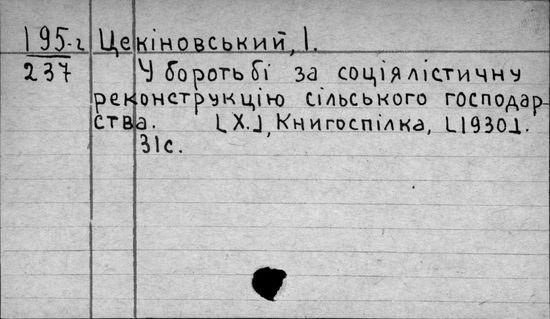 195-г Цекіновський, І.
237 У боротьбі за соціялістичну
реконструкцію сільського господар-
ства. [Х.], Книгоспілка, [1930].
31с.